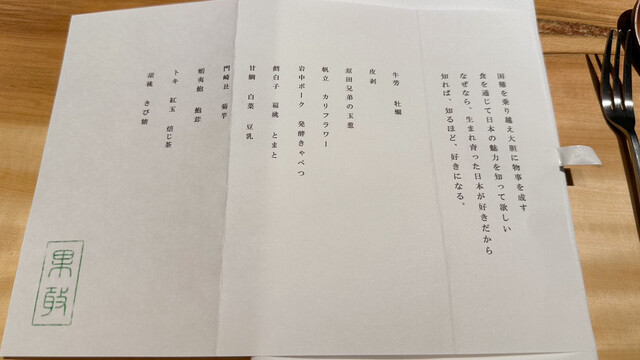 困難を乗り越え大胆に物事を成す
食を通じて日本の魅力を知って欲しい
なぜなら、生まれ育った日本が好きだから
知れば、知るほど、好きになる。
牛蒡 牡蠣
皮剥
原田兄弟の玉葱
帆立 カリフラワー
岩中ポーク 発酵きゃべつ
鱈白子 とまと
甘鯛 白菜 豆乳
門崎丑 菊芋
蝦夷鮑 鮑茸
トキ 紅玉 焙じ茶
胡桃 きび糖
果敢